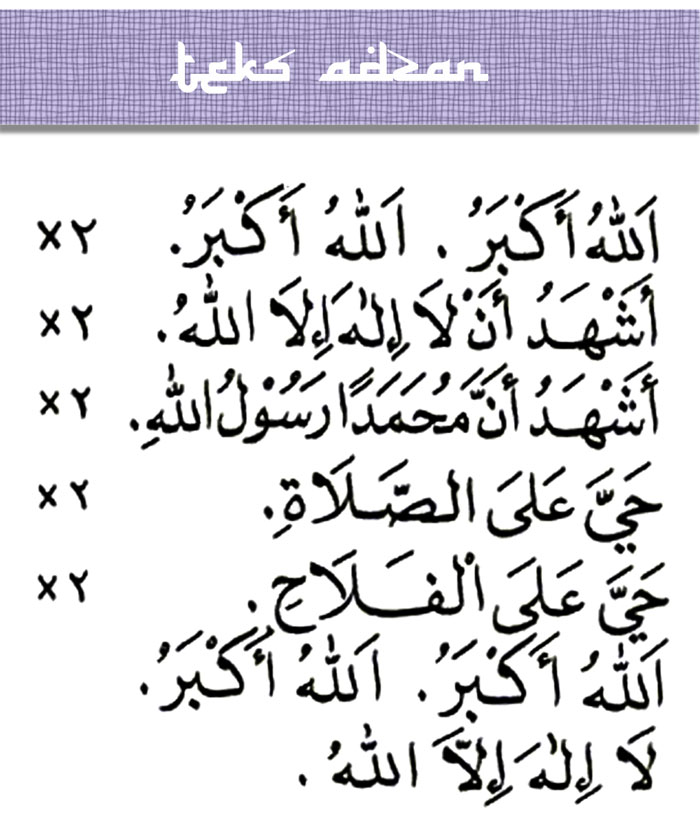 teks adzan
اَللهُ أَكْبَرُ . اَللهُ أَكْبَرُ. ٢×
أَشْهَدُ أَنْ لَا إِلٰهَ إِلَا اللهُ. ٢×
أَشْهَدُ أَنَّ مُحَمَدًا رَسُوْلُ اللهِ. ٢×
حَيَّ عَلَى الصَّلَاةِ. ٢×
حَيَّ عَلَى الْفَلَاحِ. ٢×
اَللهُ أَكْبَرُ. اَللهُ أَكْبَرُ.
لَا إِلٰهَ إِلَّا اللهُ .